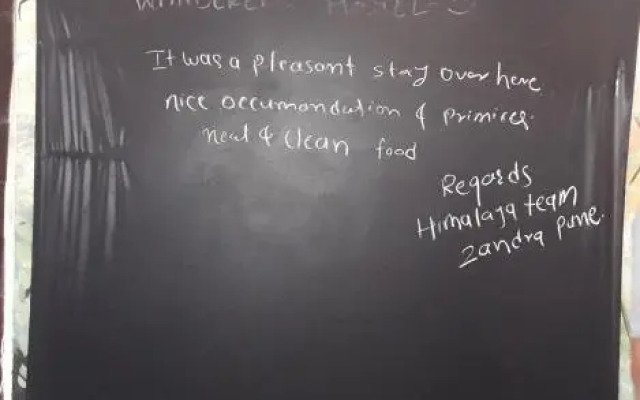 WANDERER HOSTEL
It was a pleasant stay over here
nice occumondation & primices.
neat & clean food
Regards
Himalaya team
Zandra pune.